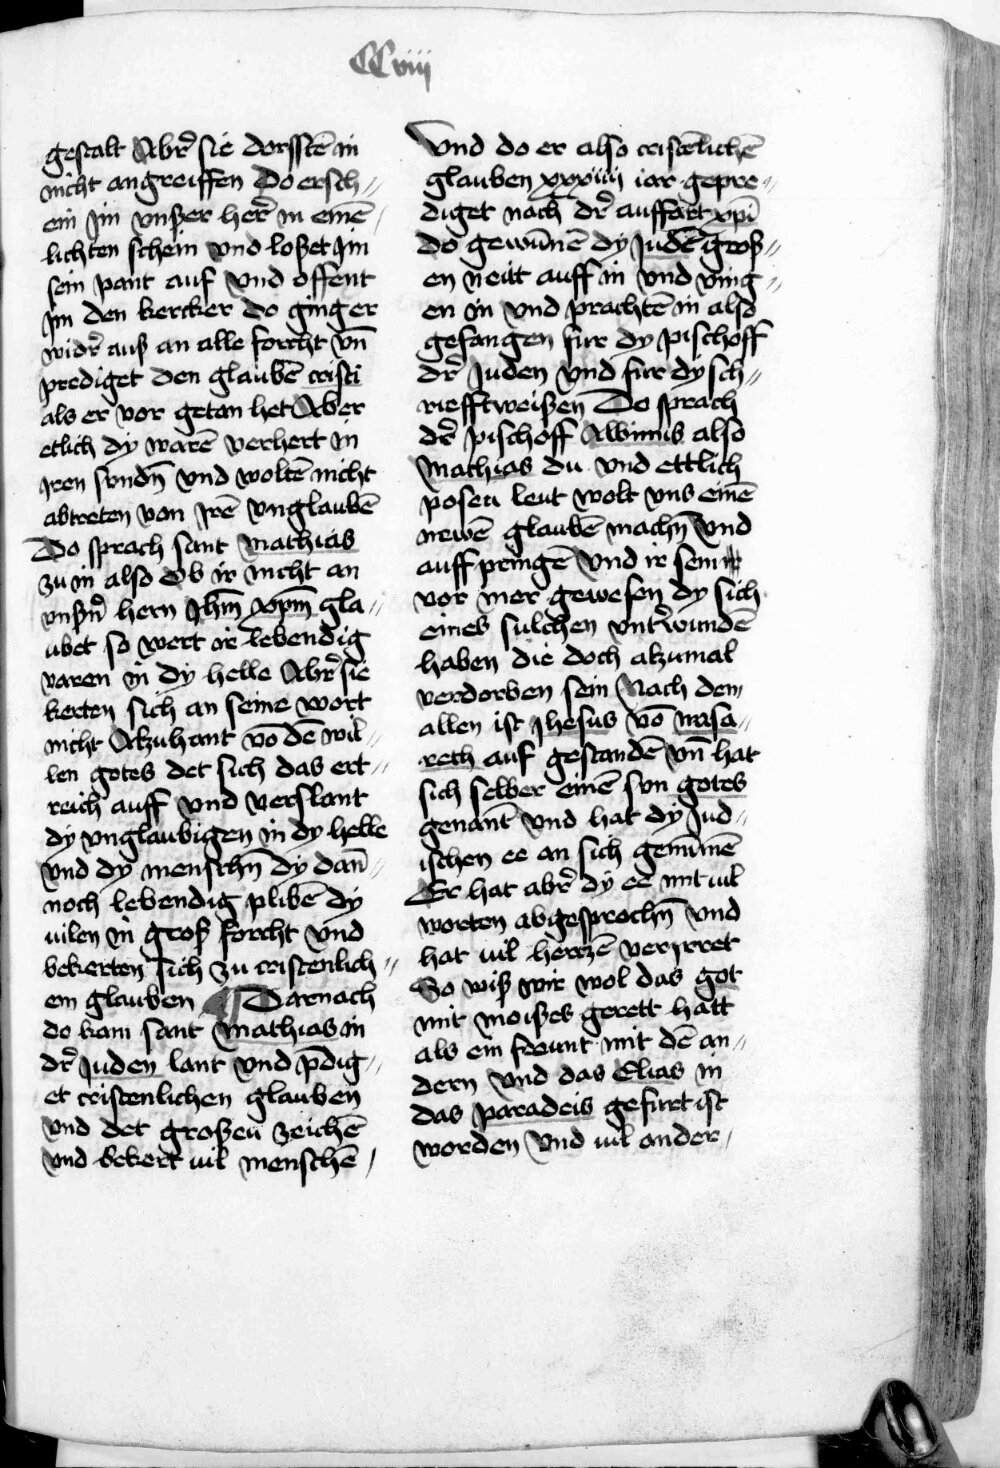 CCviii
gestalt Abr̃ sie dorsstē in
nicht angreiffen Do ersch⸗
ein jm vnßer her̃ in einē
lichten schein vnd loßet jm
sein pant auf vnd offent
jm den kercker do ging er
widr̃ auß an alle forcht vn̄
prediget den glaubē cristi
als er vor getan het Aber
etlich dy warē verhert in
jren sundn̄ vnd woltē nicht
abtreten von jrē vnglaubē
Do sprach sant mathias
zu in also Ob ir nicht an
vnsern̄ hern Jhm̄ xpm̄ gla⸗
ubet so wert ir lebendig
varen in dy helle Abr̃ sie
kerten sich an seine wort
nicht Alzuhant vō dē wil⸗
len gotes det sich das ert⸗
reich auff vnd verslant
dy vnglaubigen in dy helle
vnd dy menschn̄ dy dan̄⸗
noch lebendig plibē dy
vilen in groß forcht vnd
bekerten sich zu cristenlich⸗
em glauben ¶ Darnach
do kam sant mathias in
dr̃ juden lant vnd p̄dig⸗
et cristenlichen glauben
vnd det großeu zeichē
vnd bekert vil menschē
Vnd do er also cristēlichē
glauben xxxiiij iar gepre⸗
diget nach dr̃ auffart xpī
do gewūnē dy judē groß⸗
en neitt auff in vnd ving⸗
en in vnd prachtē in also
gefangen fur dy pischoff
dr̃ juden vnd fur dy sch⸗
riefftweißen Do sprach
dr̃ pischoff also
mathias du vnd ettlich
poseu leut wolt vns einē
newē glaubē machn̄ vnd
auff pringē vnd ir sein
vor mer gewesen dy sich
eines sulchen vntr̃wundē
haben die doch alzumal
verdorben sein Nach dem
allen ist Jhesus vō nasa⸗
reth auf gestandē vn̄ hat
sich selber einē sun gotes
genant vnd hat dy jud⸗
ischen ee an sich genūmē
Er hat abr̃ dy ee mit vil
worten abgesprochn̄ vnd
hat vil herczē veryrret
So wiß wir wol das got
mit moißes gerett hatt
als ein freunt mit dē an⸗
dern vnd das Elias in
das paradeis gefurt ist
worden vnd vil ander